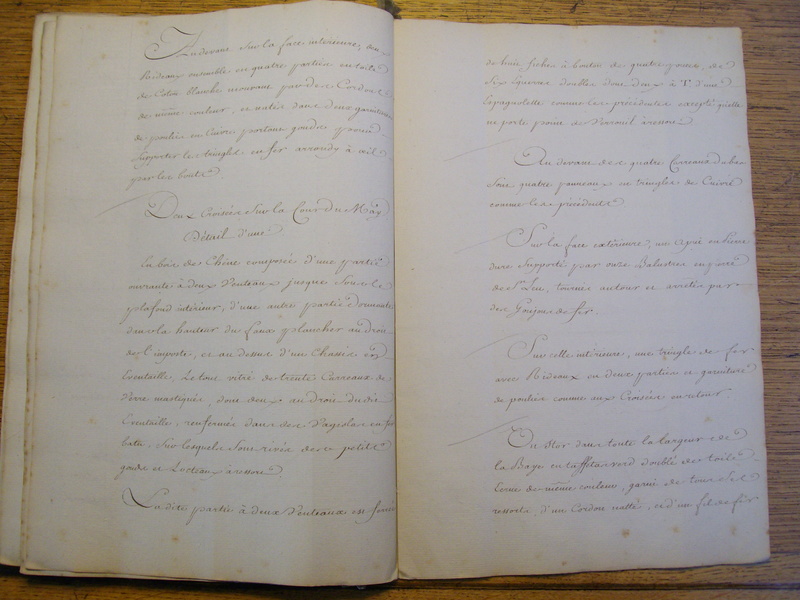 Au devant Sur la face intérieure, deux
Rideaux ensemble en quatre parties en toile
de Coton blanche mouvant par des Cordons
de même couleur, et nattes dans deux garnitures
de poulies en Cuivre portant gonds pour
Supporter les tringles en fer arrondy à œil
par les bouts.
Deux Croisées Sur la Cour du May
Détail d'une.
En bois de Chêne composée d'une partie
ouvrante à deux Venteaux jusques Sous le
plafond intérieur, d'une autre partie dormante
dans la hauteur du faux plancher au droit
de l'imposte, et au dessus d'un Chassis en
Eventaille, Le tout vitré de trente Carreaux de
Verre mastiqués, dont deux au droit du dit
Eventaille, renfermés dans des
battu Sur lesquels Sont rivés deux petits
gonds et Loqueteaux à ressort
La dite partie à deux Venteaux est ferrée
de huit fiches à bouton de quatre pouces, de
Six Equerres doubles dont deux à T. d'une
Espagnolette comme les précédentes excepté qu'elle
ne porte point de Verrouil à ressort.
Au devant des quatre Carreaux du bas
Sont quatre panneaux en tringles de Cuivre
comme les précédents
Sur la face extérieure, un Apui en pierre
dure Supporté par onze Balustres en pierre
de St Leu, tournés autour et arrêtés par
des Goujons de fer.
Sur celle intérieure, une tringle de fer
avec Rideaux en deux parties et garniture
de poulies comme aux Croisées en retour
Un Stor dans toute la largeur de
la Baye en taffetas verd doublé de toile
Ecrue de même couleur, garni de tous Ses
ressorts, d'un Cordon natté, et d'un fil de fer